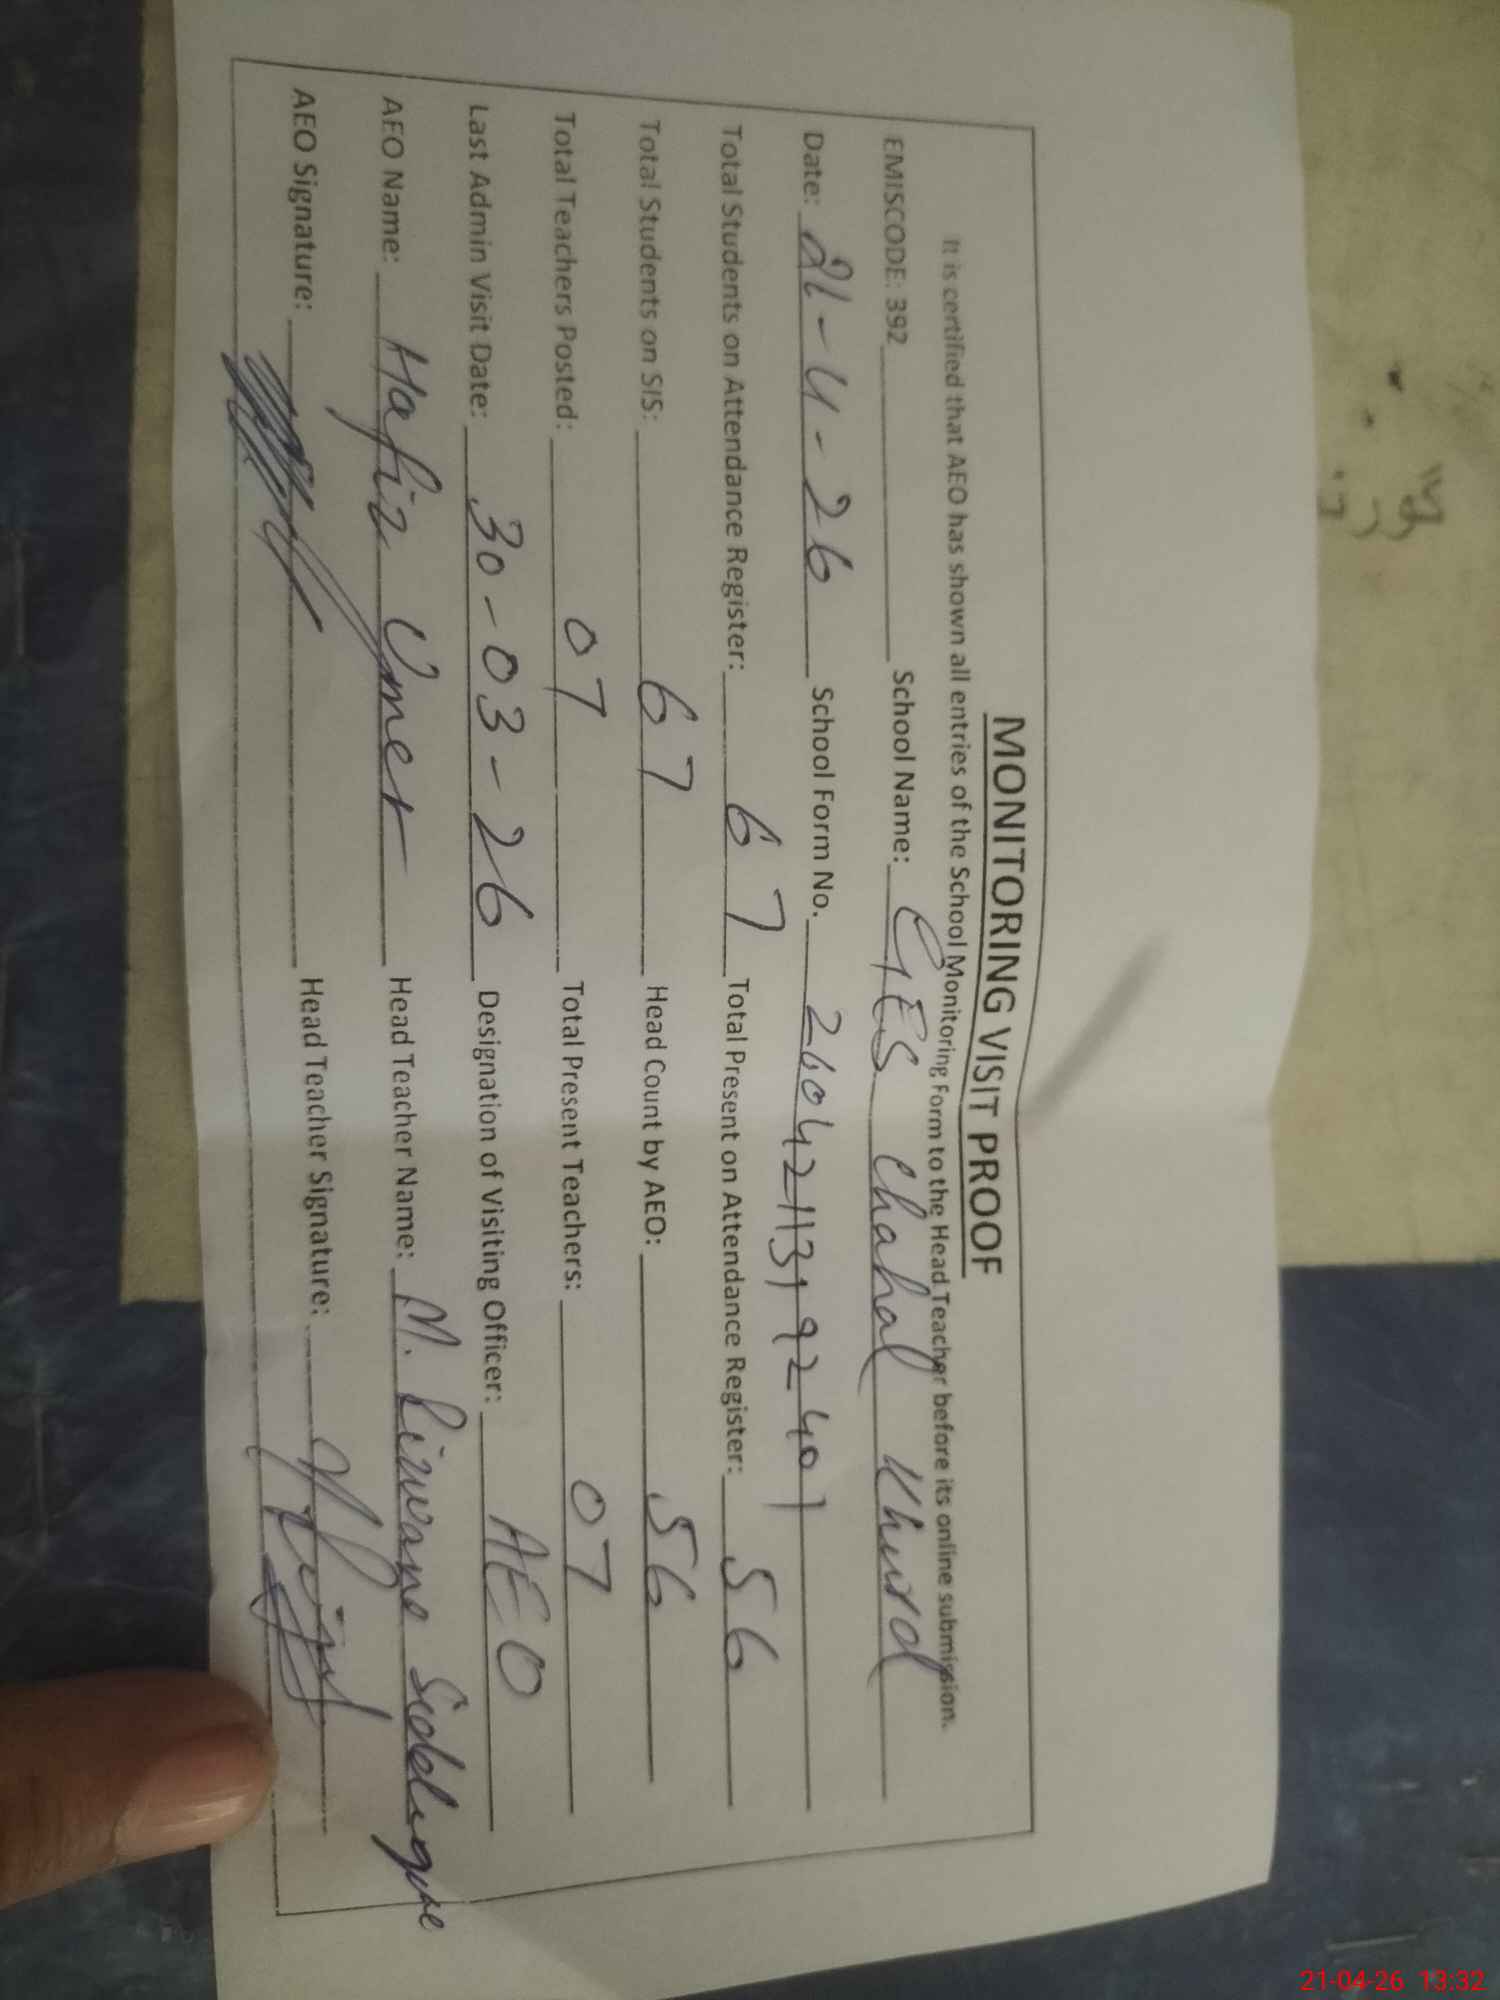 MONITORING VISIT PROOF
It is certified that AEO has shown all entries of the School Monitoring Form to the Head Teacher before its online submission.
EMISCODE: 392 School Name: GES Chahal Khurd
Date: 21-4-26 School Form No. 26042113192401
Total Students on Attendance Register: 67 Total Present on Attendance Register: 56
Total Students on SIS: 67 Head Count by AEO: 56
Total Teachers Posted: 07 Total Present Teachers: 07
Last Admin Visit Date: 30-03-26 Designation of Visiting Officer: AEO
AEO Name: Hafiz Umer Head Teacher Name: M. Rizwan Siddique
AEO Signature: Head Teacher Signature:
21-04-26 13:32